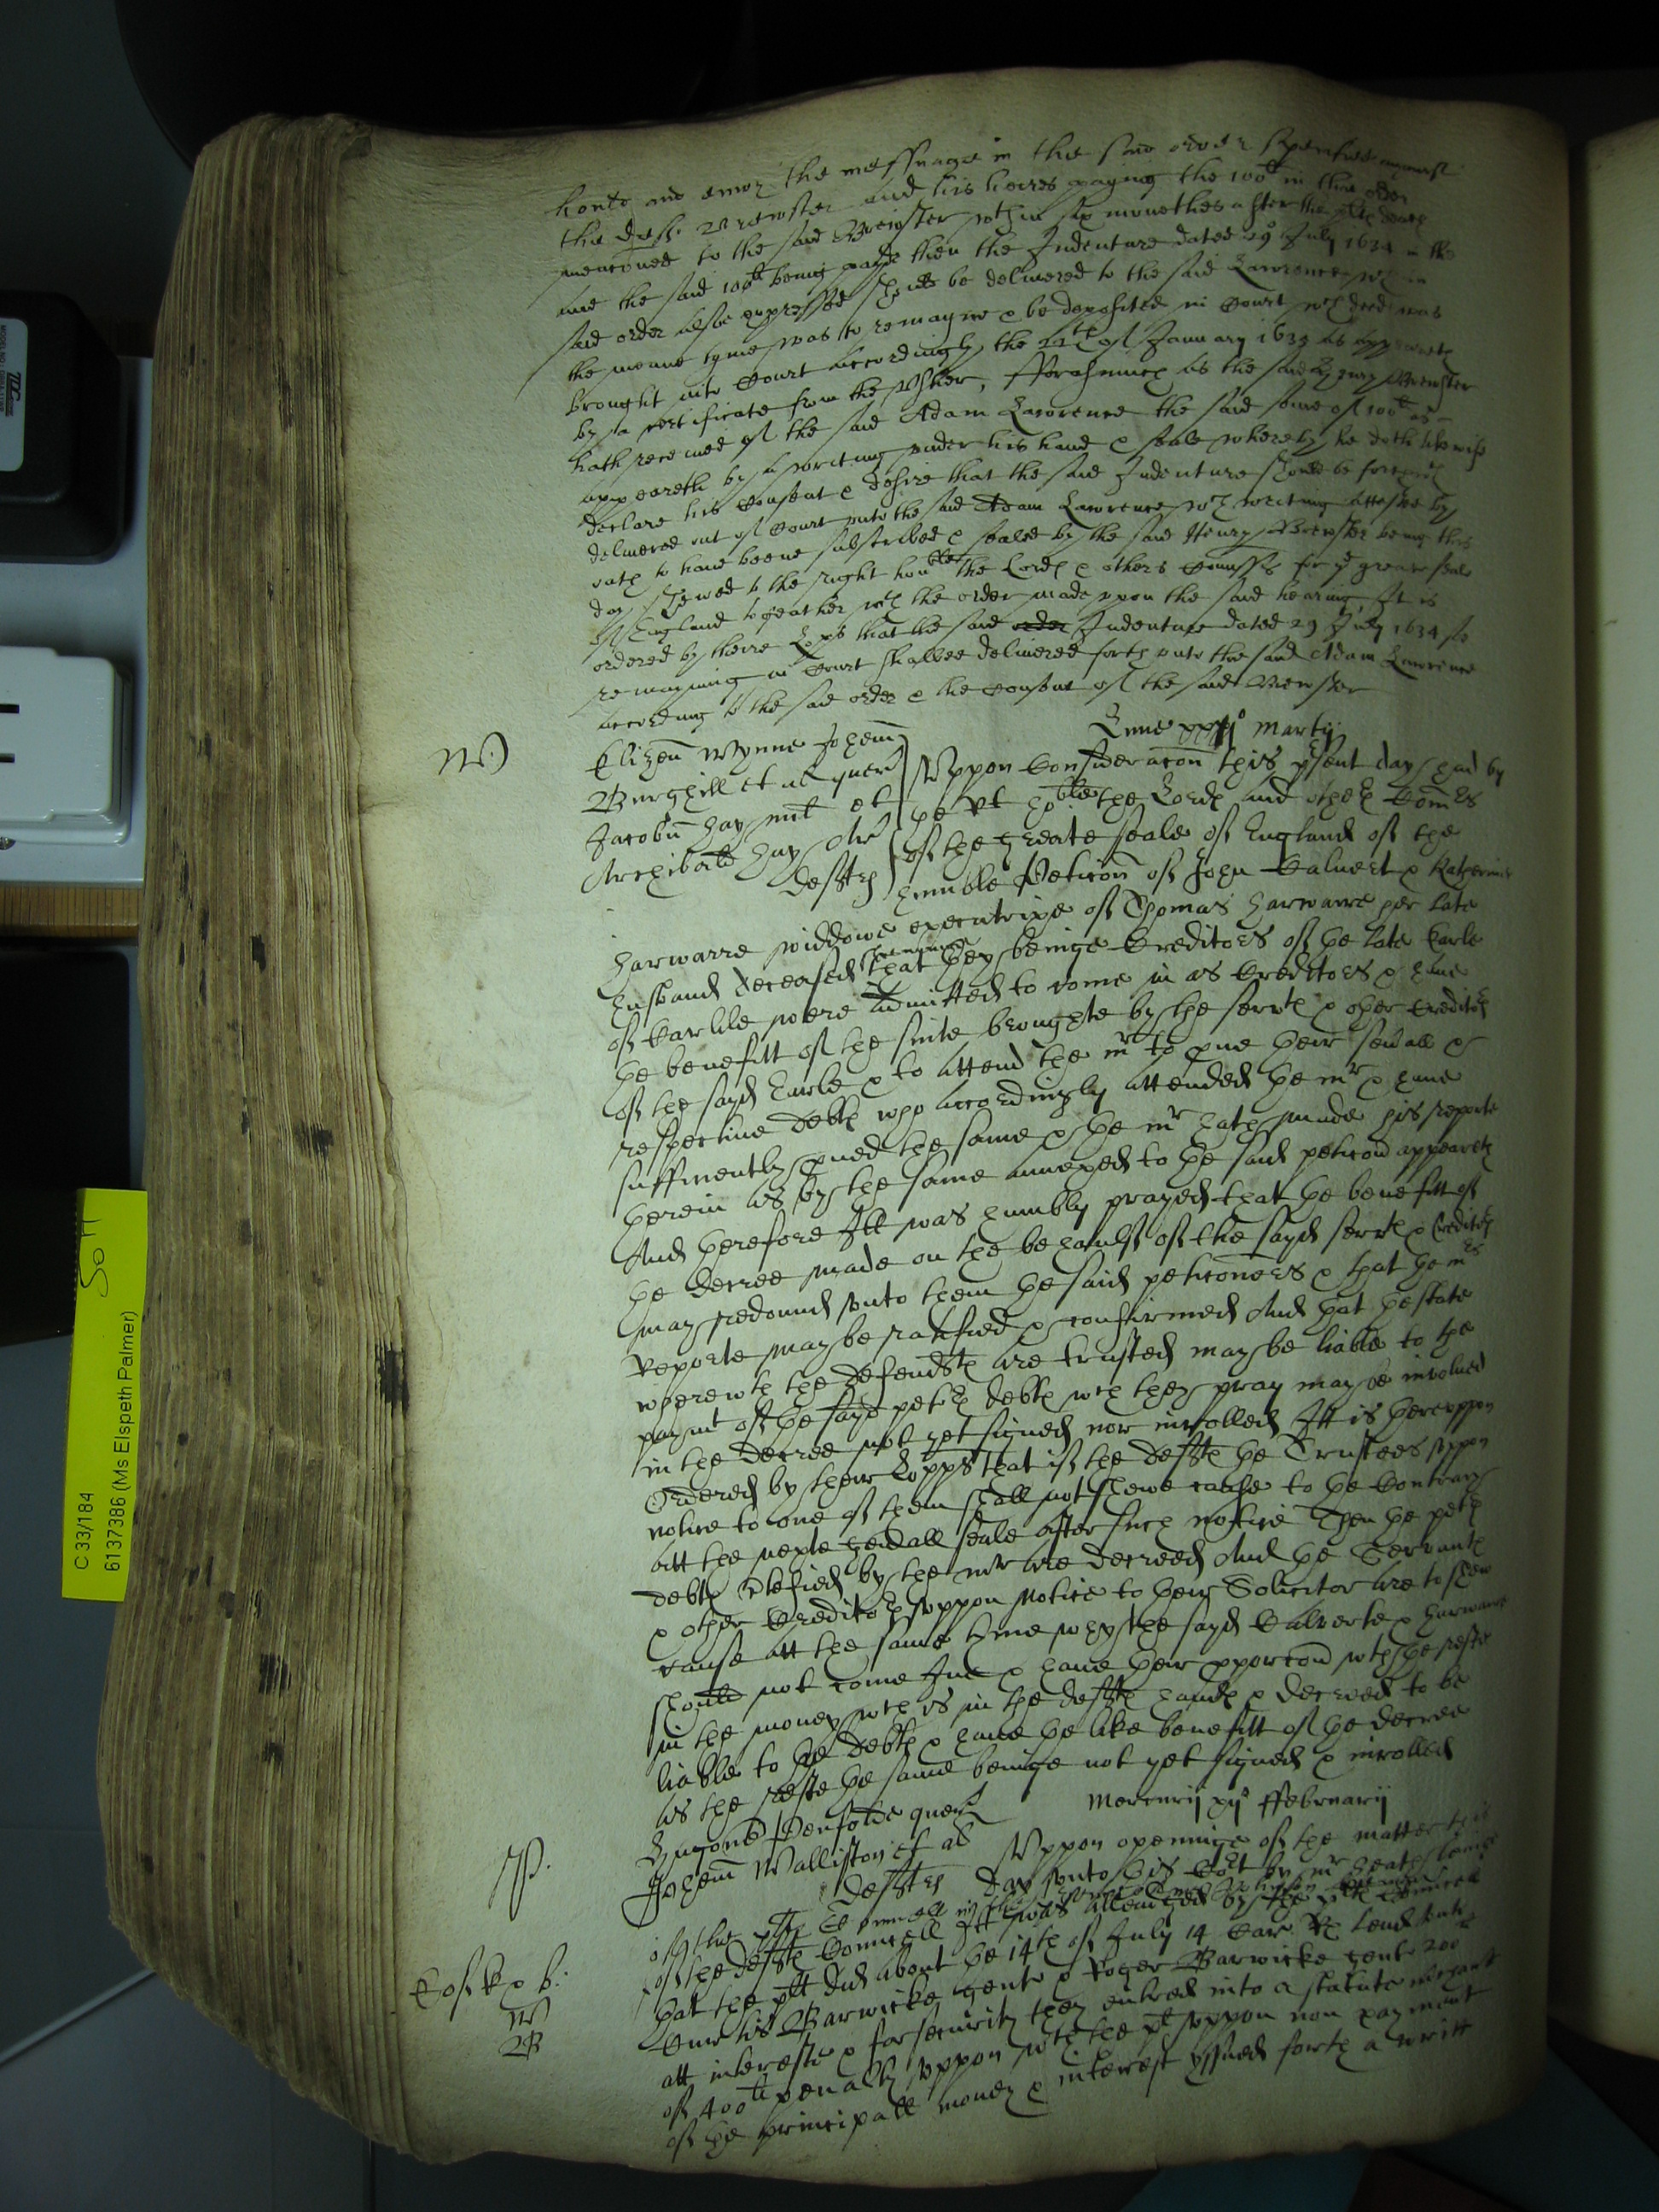 the messuage in the said order
the deft Brewster and his heires paying the 100li in the order
menconed to the said Brewster within six monethes after the
and the said 100li being payd then the Indenture dated 29o July 1634 in the
said order also expressed should be delivered to the said Lawrence wch in
the meane tyme was to remayne & be deposited in Court wch deed was
brought into Court accordingly the of January 1639 as appeareth
by a certificate from the Usher, fforasmuch as the said Henry Brewster
hath received of the said Adam Lawrence the said some of 100li as
appeareth by a writing under his hand & seale whereby he doth likewise
declare his consent & desire that the said Indenture should be forthwth
delivered out of Court unto the said Adam Lawrence wch writing attested by
oath to have beene subscribed & sealed by the said Henry Brewster being this
day shewed to the right honble the Lords & others Comrs for ye greate seale
of England togeather wth the order made upon the said hearing, It is
ordered by theire Lopps that the said order Indenture dated 29 July 1634 so
remayning in Court shalbee delivered forth unto the said Adam Lawrence
according to the said order & the consent of the said Brewster
Lune Martij
W)
Elizeu Wynne Johem
Burghill et al quer Uppon consideracon this psent day had by
Jacobu Hay mit et the Rt hoble the Lords and other Comrs
Archibald Hay Ar of the greate seale of England of the
deftes humble Peticon of John Calvert & Katherine
Harwarre widdowe executrixe of Thomas Harwarre her late
husband deceased that they beinge Creditors of the late Earle
of Carlile were admitted to come in as Creditors & have
the benefitt of the suite broughte by the servts & other Creditors
of the sayd Earle & to attend the mr to prve their sevall &
respective debts who accordingly attended the mr & have
sufficiently prved the same & the mr hath made his reporte
therein as by the same annexed to the said peticon appeareth
And therefore Itt was humbly prayed that the benefitt of
the decree made on the behaulf of the sayd servts & Creditors
may redound unto them the said peticoners & that the mrs
Reporte may be ratifyed & confirmed And that the estate
wherewth the defendts are trusted may be liable to the
paymt of the sayd petrs debts wch they pray may be involved
in the decree not yet signed nor inrolled It is hereuppon
Ordered by their Lopps that if the defts the Trustees uppon
notice to one of them shall not shewe cause to the Contrary
att the nexte genall seale after such notice Then the petrs
debts by the mr are decreed And the Servants
& other Creditors uppon notice to their Solicitor are to shew
cause att the same tyme why the sayd Calverte & Harwarre
should not come In & have their pporcon wth the reste
in the money wch is in the defts hands & decreed to be
liable to the debts & have the like benefitt of the decree
as the reste the same beinge not yet signed & inrolled
Mercurij xijo ffebruarij
P.
Penfolde quer
Johem Walliston et al Uppon openinge of the matter this
deftes day unto this Cort by mr Heath
of the plts Councell in the
of the defts Councell Itt was alledged by the plts Councell
that the plt did about the 14th of July 14 Car Rs lend unto
Barwicke gent & Roger Barwicke gent 200
att intereste & for security they entred into a statute
of 400li penalty uppon wch the plt uppon non payment
of the principall money & interest yssued forth a writt
W
B
C 33/184
6137386 (Ms Elspeth Palmer)